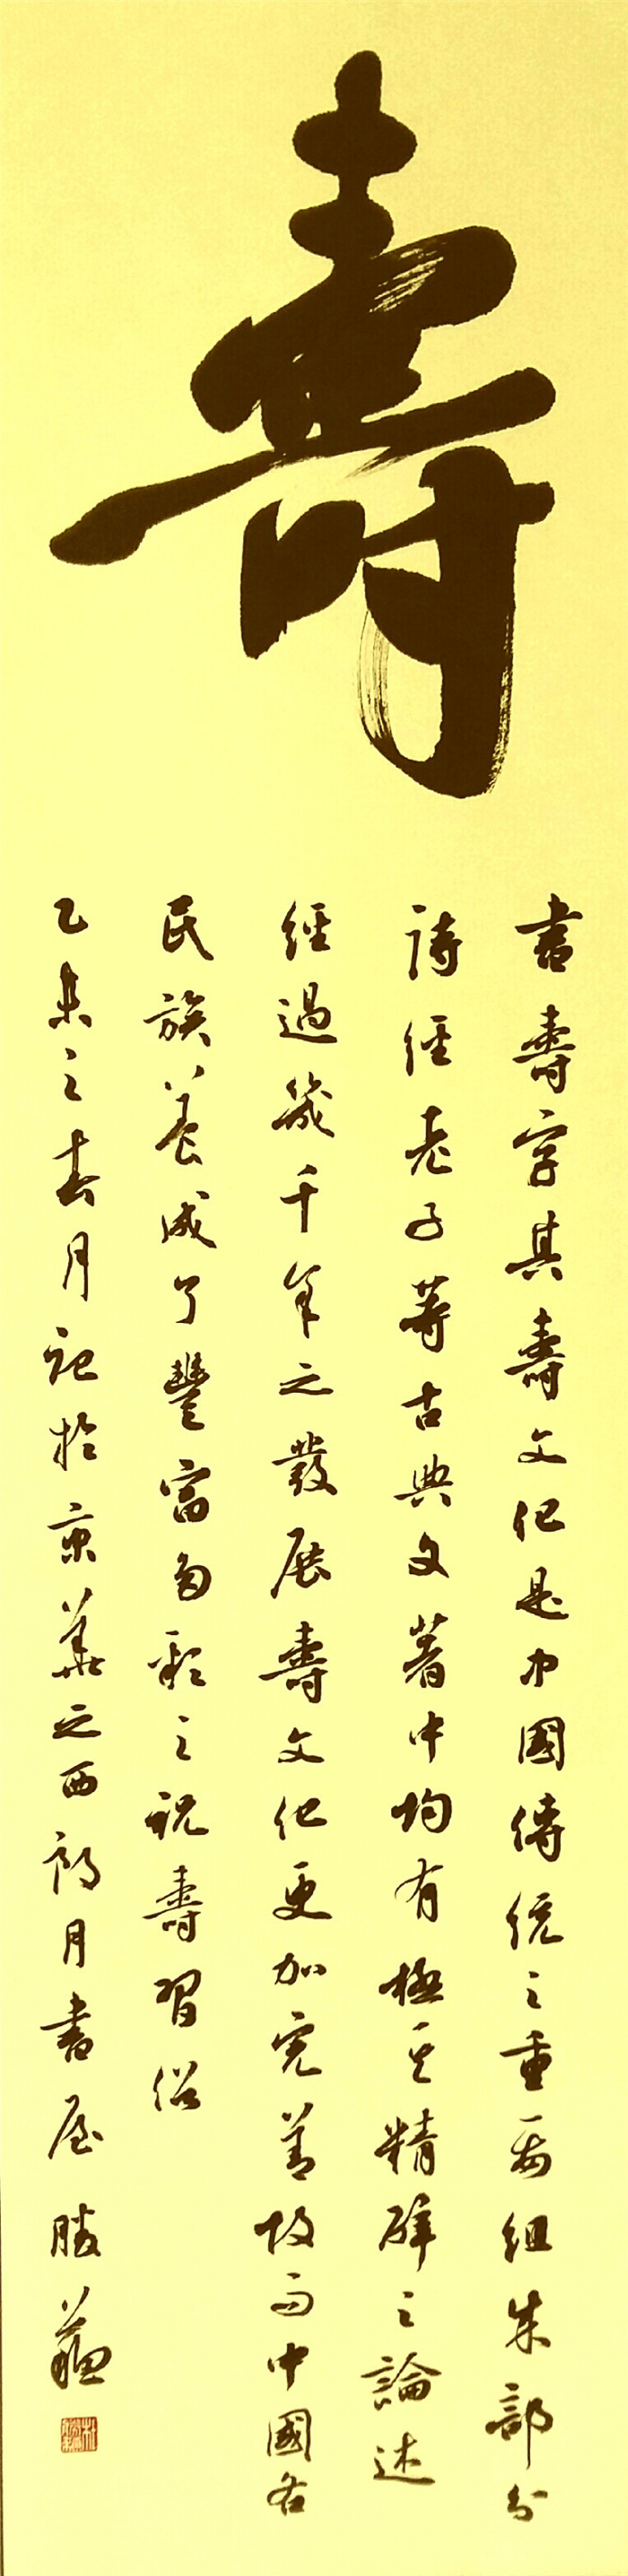 壽
書壽字其壽文化是中國傳統之重要組成部分
詩經老子等古典文著中均有極其精辟之論述
經過幾千年之發展壽文化更加完善故而中國各
民族養成了豐富多彩之祝壽習俗
乙未之春月記於京華之西朗月書屋勝